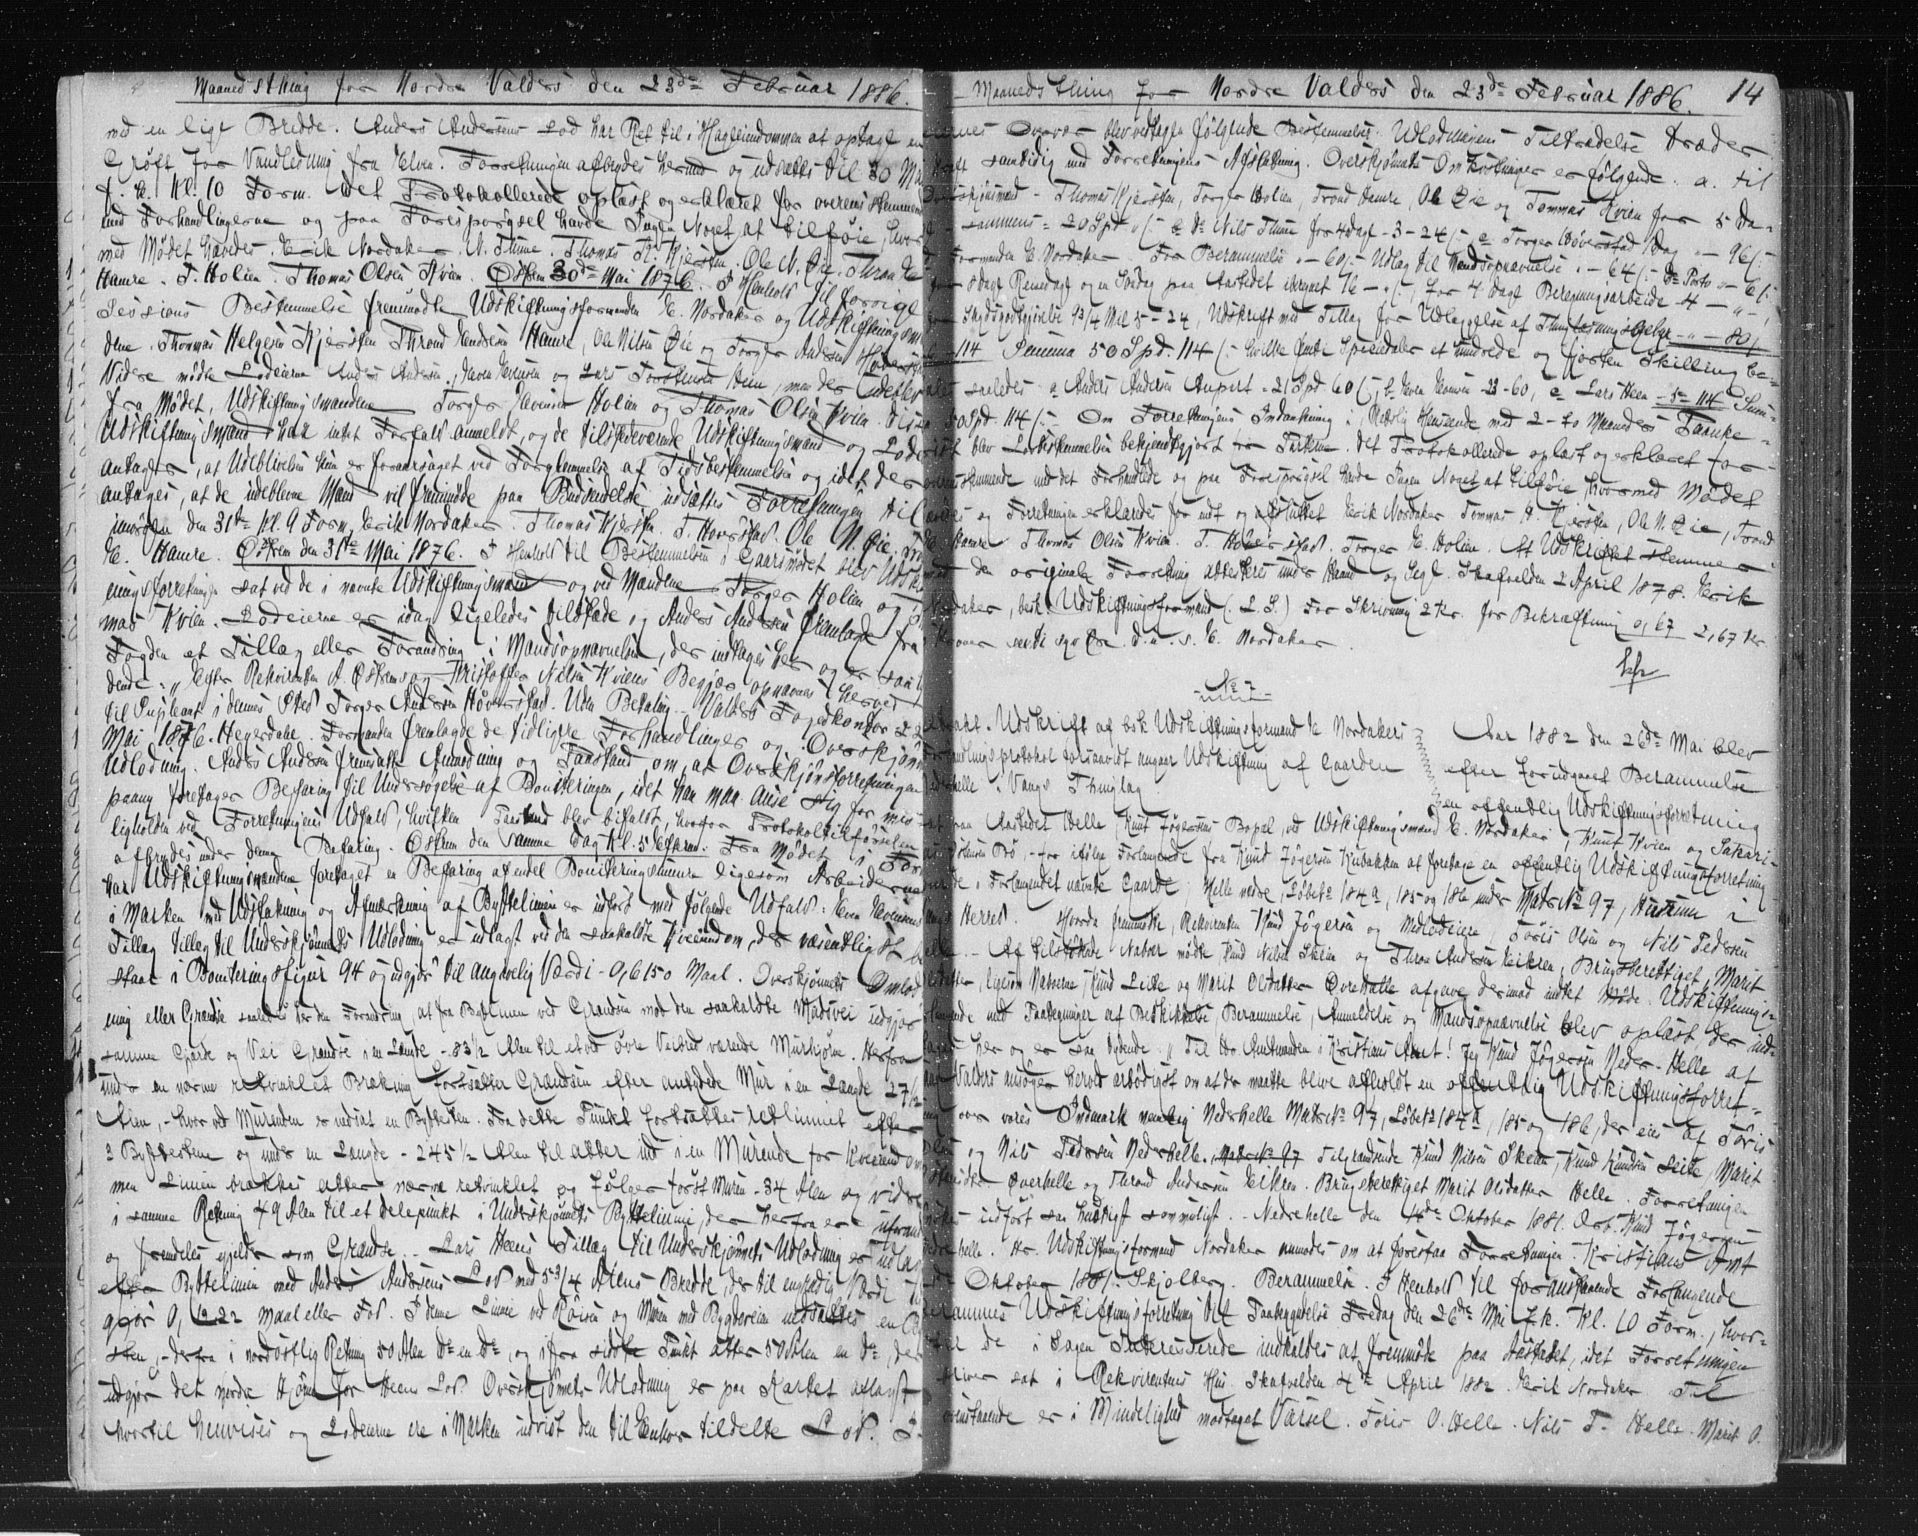 Maanedsthing for Nordre Valders den 23de Februar 1886.
med en lige Bredde. Anders Andersens Lod har Ret til i Haveeiendommen at optage en
Grøft for Vandledning fra Elven. Forretningen afbrydes herved og udsættes til 30 Mai
d. A. Kl. 10 Form. Det Protokollerede oplæst og erklæret for overensstemmende
med Forhandlingerne og paa Forespørgsel havde Ingen Noget at tilføie, hvor-
med Mødet hævedes. Erik Nordaker. N. Thune. Thomas H. Kjersten. Ole N. Øie. Thron E.
Hamre. T. Holien. Thomas Olsen Kvien. Østrem 30de Mai 1876. I Henhold til forrige
Sessions Bestemmelse fremmødte Udskiftningsformanden E. Nordaker og Udskiftningsmæn-
dene Thomas Helgesen Kjersten, Thrond Hamre, Ole Nilsen Øie og Torger Andersen Høverstad
Videre mødte Lodeierne Anders Andersen, Iver Iversen og Lars Torstensen Heen, men der udeblev
fra Mødet, Udskiftningsmændene Torger Evensen Holien og Thomas Olsen Kvien. Disse
Udskiftningsmænd har intet Forfald anmeldt, og de tilstedeværende Udskiftningsmænd og Lodeiere
antager, at Udeblivelsen er foraarsaget ved Forglemmelse af Tidsbestemmelsen og idet der
antages, at de udeblevne Mænd vil fremmøde paa Budsendelse udsættes Forretningen til
imorgen den 31te Kl. 9 Form. Erik Nordaker. Thomas Kjersten. T. Hoverstad. Ole N. Øie, Tron
E. Hamre. Østrem den 31te Mai 1876. I Henhold til Bestemmelsen i Gaarsmødet blev Udskift-
ningsforretningen sat ved de i nævnte Udskiftningsmænd og ved Mændene Torger Holien og Tho-
mas Kvien. Lodeierne er idag ligeledes tilstede og Anders Andersen fremlagde fra
Fogden et Tillæg eller Forandring i Mandsopnævnelsen, der indtages her og er saaly-
dende: "Efter Rekvirenten A. Østrems og Kristoffer Nilsen Kviens Begjær opnævnes herved
til Supleant i dennes Sted Torger Andersen Høverstad. Uden Betaling. Valders Fogedkontor 22
Mai 1876. Hegerdahl. Formanden fremlagde de tidligere Forhandlinger og Overskjønnets
Udlodning. Anders Andersen fremsatte Anmodning og Paastand om, at Overskjønsforretningen
paany foretager Befaring til Undersøgelse af Boniteringen, idet han maa anse sig for mis-
ligholden ved Forretningens Udfald, hvilken Paastand blev bifaldt, hvorfor Protokoltilførselen
afbrydes under denne Befaring. Østrem den samme Dag Kl. 5 Efterm. Fra Mødet i For-
har Udskiftningsmændene foretaget en Befaring af endel Boniteringsnumre ligesom Arbeiderne
i Marken med Udstakning og Afmærkning af Byttelinien er udført med følgende Udfald: Iver Iversens
Tillæg tillagt til Underskjønnets Udlodning er udlagt ved den saakaldte Kveeiendom, der væsentligst
staar i Boniteringsfigur 94 og udgjør til angivelig Værdi - 0,6150 Maal. Overskjønnets Omlod-
ning eller Grændse saaledes er den Forandring, at fra Bygmuren ved Grændsen mod den saakaldte Madsvei udgjør
samme Gjærde og Vei Grændse i en Længde - 83 1/2 Alen til et ved øvre Veibred værende Murhjørne. Herfra
under en næsten retvinklet Brækning fortsætter Grændsen efter antydede Mur i en Længde 27 1/2
Alen, hvor ved Murenden er nedsat en Byttesten. Fra dette Punkt fortsættes retliniet efter
2 Byttestene og under en Længde - 245 1/2 Alen til atter ind i en Murende for Kveeiendom
men Linien brækkes atter næsten retvinklet og følger først Muren - 34 Alen og videre
i samme Retning 49 Alen til et Delepunkt i Underskjønnets Byttelinie, der herfra er uforandret
og fremdeles gjelder som Grændse. - Lars Heens Tillæg til Underskjønnets Udlodning er udlagt
efter Byttelinien med Anders Andersens Lod med 5 3/4 Alens Bredde, der til angivelig Værdi ud-
gjør 0,1222 Maal eller Fod. I denne Linie ved Røisen og Muren ved Bygdeveien nedsattes en By-
sten, - derfra i nordøstlig Retning 50 Alen do en do, og ifra sidste Punkt atter 50 Alen en do, der
udgjør det nordre Hjørne for Heens Lod. Overskjønnets Udlodning er paa Kartet aflagt
hvortil henvises og Lodeierne ere i Marken udvist den til Enhver tildelte Lod. I
Maanedsthing for Nordre Valders den 23de Februar 1886. 14
ernes Overvær blev vedtagen følgende Bestemmelser: Udlodningens Tiltrædelse træder i
Kraft samtidig med Forretningens Afslutning. Overskjønnets Omkostninger er følgende. a. til
Overskjønsmænd - Thomas Kjersten, Torger Holien, Trond Hamre, Ole Øie og Tommas Kvien for 5 Da-
ge sammens = 20 Spd "/- b. do Nils Thune for 4 Dage - 3 - 24/- c. Torger Høverstad 1 Dag " - 96/-
d. Formanden E. Nordaker. For Berammelse " - 60/- Udlæg til Mandsopnævnelse " - 64/- do Porto " - 6/-
for 8 Dage Reisedage og en Søndag paa Aastedet ihvrent 16 - "/- for 4 Dage Beregningsarbeide 4 - " -
for Skydsgodtgjørelse 13/4 Mil 5 - 24, Udskrift med Tillæg for Udlæggelse af Thinglæsningsgebyr - " - 80/-
114 Summa 50 Spd. 114/- hvilke femti Speciedaler et hundrede og fjorten Skilling be-
tales saaledes a Anders Andersen Anpart - 21 Spd 60/-, b. Iver Iversen - 23 - 60, c. Lars Heen - 5 - 114 Sum-
ma 50 Spd 114/- Om Forretningens Indankning i Retslig Henseende med 2 - to Maaneders Tanke-
frist blev Lovbestemmelsen bekjendtgjort for Parterne. Det Protokollerede oplæst og erklæret for
overensstemmende med det Forhandlede og paa Forespørgsel havde Ingen Noget at tilføie, hvormed Mødet
hævedes og Forretningen erklæredes for endt og afsluttet Erik Nordaker Tommas H. Kjersten, Ole N. Øie, Trond
E. Hamre Thomas Olsen Kvien. T. Høverstad. Torger E. Holien. At Udskriftet stemmer
med den originale Forretning attesteres under Haand og Segl. Skafvolden 2 April 1878. Erik
Nordaker, besk. Udskiftningsformand (L. S.) For Skrivning 2 Kr. for Bekræftning 0,67 2,67 to
Kroner sexti syv Øre. d. u. s. E. Nordaker.
No 7
Extrakt. Udskrift af bsk Udskiftningsformand E. Nordakers
Forhandlingsprotokol forsaavidt angaar Udskiftning af Gaarden
Nedrehelle i Vangs Thinglag.
Aar 1882 den 26de Mai blev
efter forudgaaet Berammelse
en offentlig Udskiftningsforretning
sat paa Aastedet Helle i Knut Jøgersens Bopæl, ved Udskiftningsmand E. Nordaker, Knut Kvien og Sakari-
as Johnsen Bø, - for ifølge Forlangende fra Knud Jøgersen Kubakken at foretage en offentlig Udskiftningsforretning
over de i Forlangendet nævnte Gaarde Helle nedre, Løbeno 184a, 185 og 186 under Matr No 97, Hurum i
Vangs Herred. Hvorda fremmødte, Rekvirenten Knud Jøgersen og Medlodeiere, Jøris Olsen og Nils Pedersen
Helle. Af tilstødende Naboer mødte Knud Nilsen Skeen og Thron Andersen Eikren, Brugsberettiget, Marit
Olsdatter, ligesom Naboerne, Knud Leite og Marit Olsdatter Øvrehelle afgave derimod indtet Møde. Udskiftnings-
forlangende med Paategninger af Beskikkelse, Berammelse, Anmeldelse og Mandsopnævnelse blev oplæst, der ind-
tages her og er saa lydende. "Til Hr. Amtmanden i Kristians Amt! Jeg Knud Jøgersen Neder-Helle af
Valders ansøger herved ærbødigst om at der maatte blive afholdt en offentlig Udskiftningsforret-
ning over vores Indmark nemlig Nederhelle Matr No 97, Løbeno 184a, 185 og 186, der eies af Jøris
Olsen og Nils Pedersen Nederhelle. Matr No 97 Tilgrændsende Knud Nilsen Skeen, Knud Knudsen Leite, Marit
Olsdatter Øverhelle og Thrond Andersen Eikren. Brugsberettiget Marit Olsdatter Helle. Forretningen
ønskes udført saa hurtigst sommeligst. - Nedrehelle den 4de Oktober 1881. Ærb. Knud Jøgersen
Nedrehelle. Hr. Udskiftningsformand Nordaker anmodes om at forestaa Forretningen. Kristians Amt
Oktober 1881. Skjolberg. Berammelse. I Henhold til foranstaaende Forlangende
berammes Udskiftningsforretning til Paabegyndelse Fredag den 26de Mai f. k. Kl. 10 Form., hvor-
til de i Sagen Interesserede indkaldes at fremmøde paa Aastedet, idet Forretningen
bliver sat i Rekvirentens Hus. Skafvolden 4de April 1882. Erik Nordaker Til
ovenstaaende er i Mindelighed modtaget Varsel. Jøris O. Helle. Nils P. Helle. Marit O.